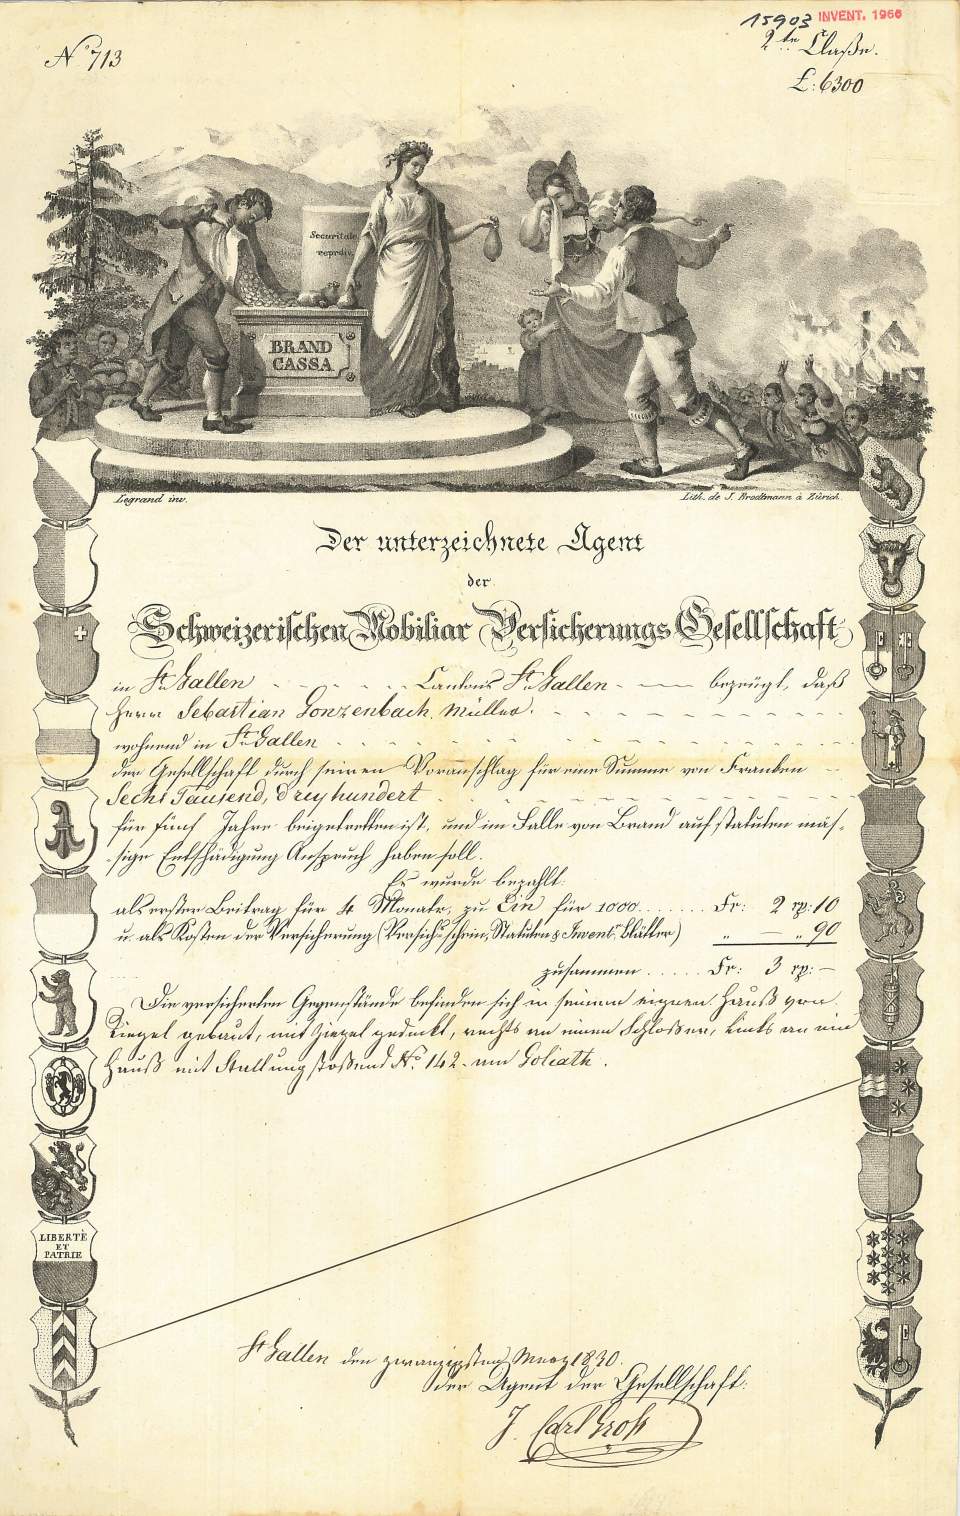 15903 INVENT. 1966
No 713
2te Claße.
£: 6300
Securitate
BRAND
CASSA
Legrand inv.
Lith. de J. Brodtmann à Zürich
Der unterzeichnete Agent
der
Schweizerischen Mobiliar Versicherungs Gesellschaft
in St. Gallen Cantons St. Gallen bezeügt, daß
Herr Sebastian Gonzenbach, Müller.
wohnend in St. Gallen
der Gesellschaft durch seinen Voranschlag für eine Summe von Franken
Sechs Tausend, Dreyhundert
für fünf Jahre beigetretten ist, und im Falle von Brand auf statuten mäs-
sige Entschädigung Anspruch haben soll.
Es wurde bezahlt:
als erster Beitrag für 4 Monate, zu Ein für 1000 Fr: 2 rp: 10
u. als Kosten der Versicherung (Versichs. schein, Statuten & Invent. Blätter) " — " 90
zusammen Fr: 3 rp: —
Die versicherten Gegenstände befinden sich in seinem eignen Hauß von
Riegel gebaut, mit Ziegel gedeckt, rechts an einen Schloßer, links an ein
Hauß mit Stallung stoßend No. 142. am Goliath.
LIBERTÈ
ET
PATRIE
St. Gallen den zwanzigsten Merz 1830.
Der Agent der Gesellschaft:
J. Carl Groß